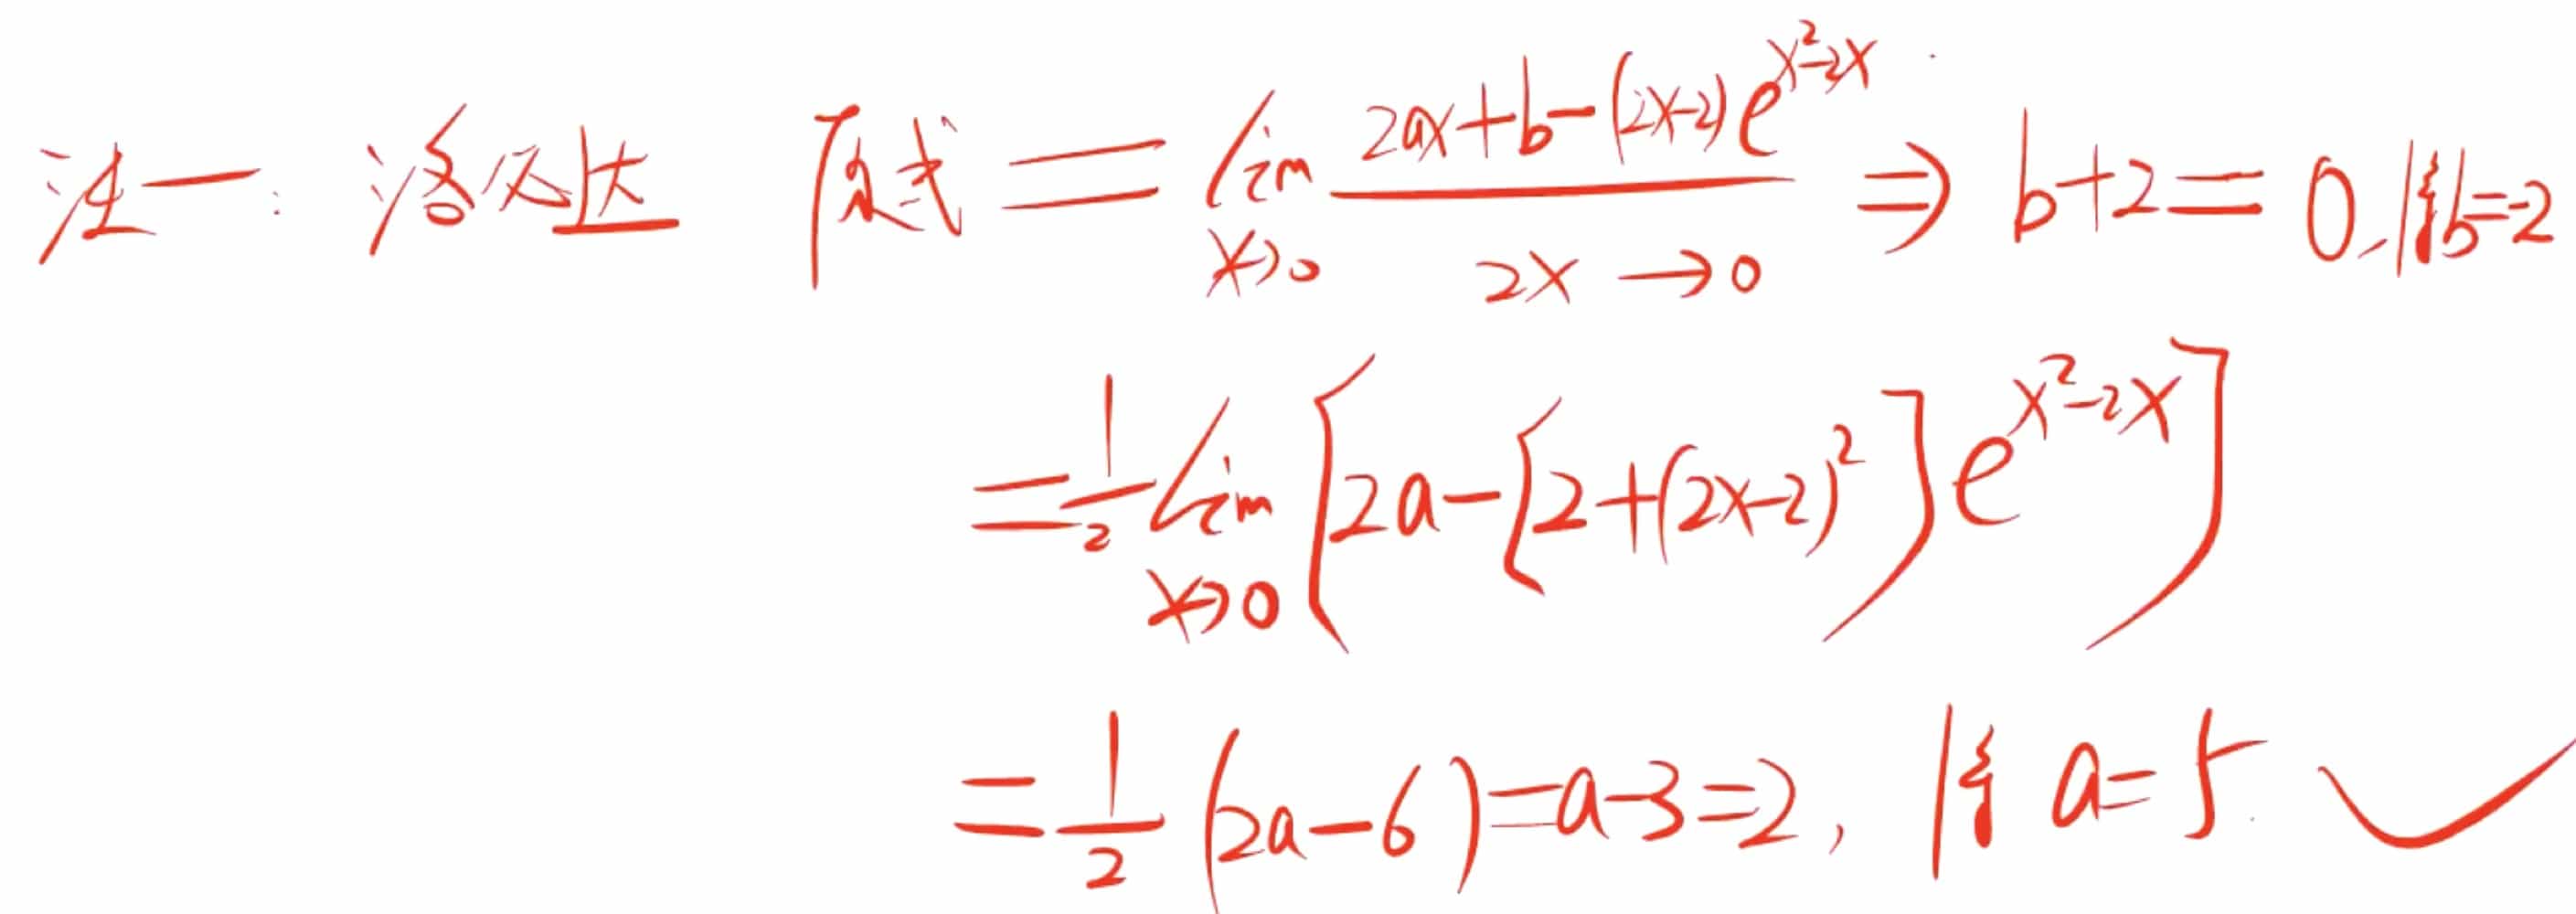 法一: 洛必达 原式 = lim_{x→0} \frac{2ax+b-(2x-2)e^{x^2-2x}}{2x → 0} ⇒ b+2=0, 得b=-2
= \frac{1}{2} lim_{x→0} [2a-[2+(2x-2)^2]e^{x^2-2x}]
= \frac{1}{2} (2a-6) = a-3 = 2, 得 a=5. ✓